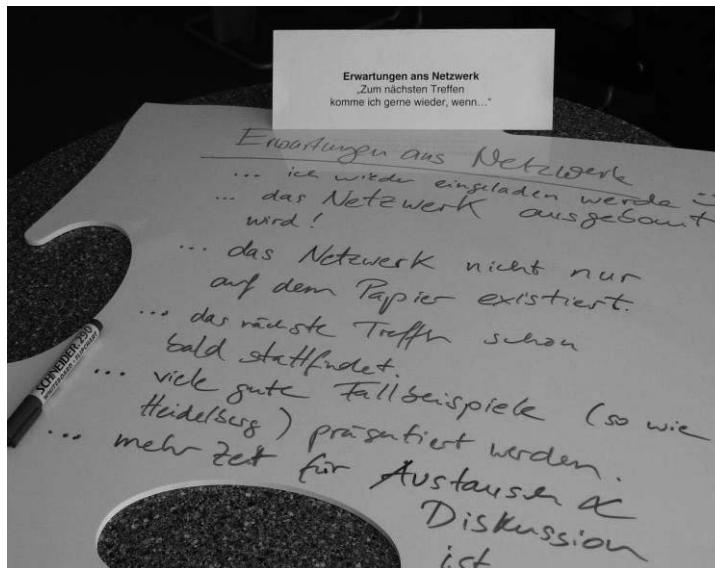 Erwartungen ans Netzwerk
„Zum nächsten Treffen
komme ich gerne wieder, wenn…“
Erwartungen ans Netzwerk
... ich wieder eingeladen werde :-)
... das Netzwerk ausgebaut
wird!
... das Netzwerk nicht nur
auf dem Papier existiert.
... das nächste Treffen schon
bald stattfindet.
... viele gute Fallbeispiele (so wie
Heidelberg) präsentiert werden.
... mehr Zeit für Austausch &
Diskussion
ist
SCHNEIDER 290
WHITEBOARD + FLIPCHART